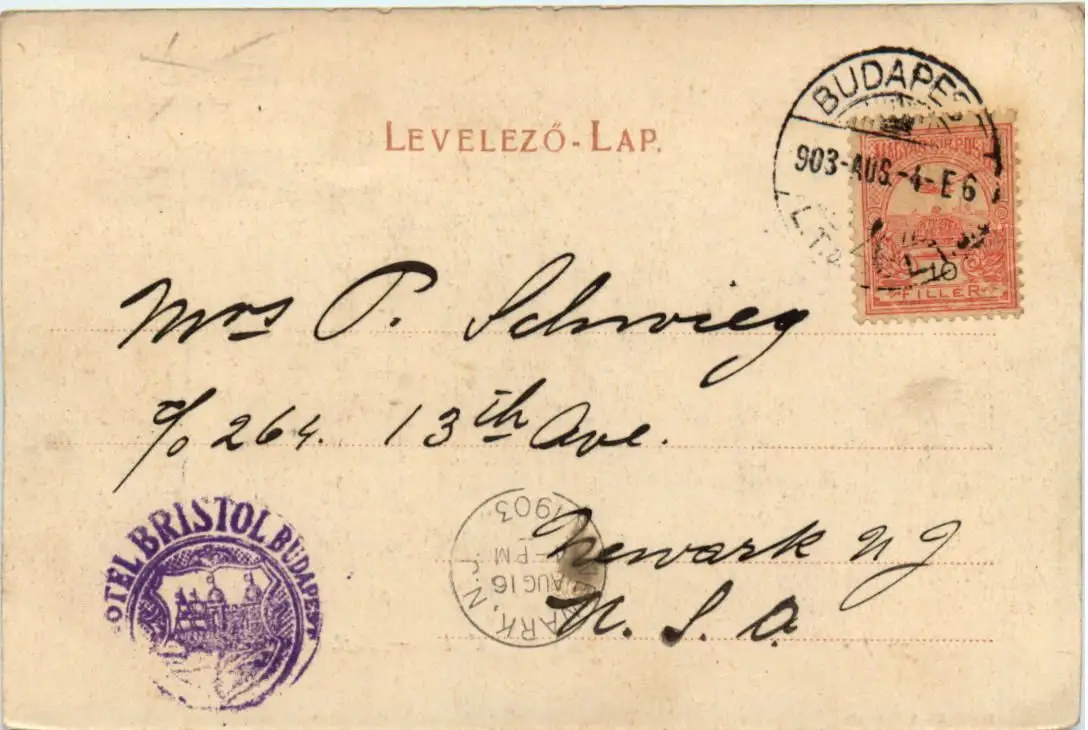 LEVELEZŐ-LAP.
BUDAPES
903-AUG.-4-E6
MAGYAR KIR. POSTA
10
FILLER
Mrs P. Schwieg
c/o 264. 13th Ave.
Newark N J
U. S. A.
HOTEL BRISTOL BUDAPEST
ARK, N.J.
AUG 16
-PM
1903